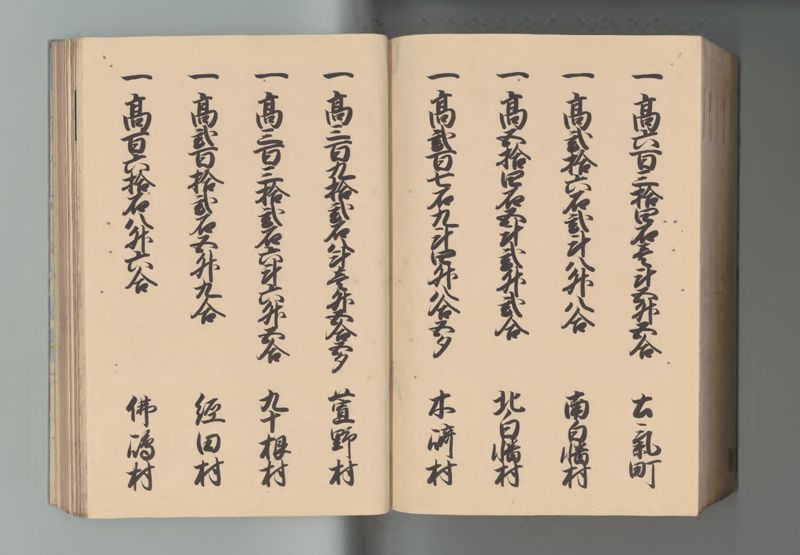 一 高六百三拾四石壱斗五升五合 古氣町
一 高弐拾六石弐斗八升八合 南白幡村
一 高五拾四石五斗弐升弐合 北白幡村
一 高弐百七石九斗四升八合五夕 木嶹村
一 高三百九拾弐石八斗壱升五合五夕 萱野村
一 高三百三拾弐石六斗六升五合 九十根村
一 高弐百拾弐石五升九合 経田村
一 高百六拾石八升六合 佛嶋村